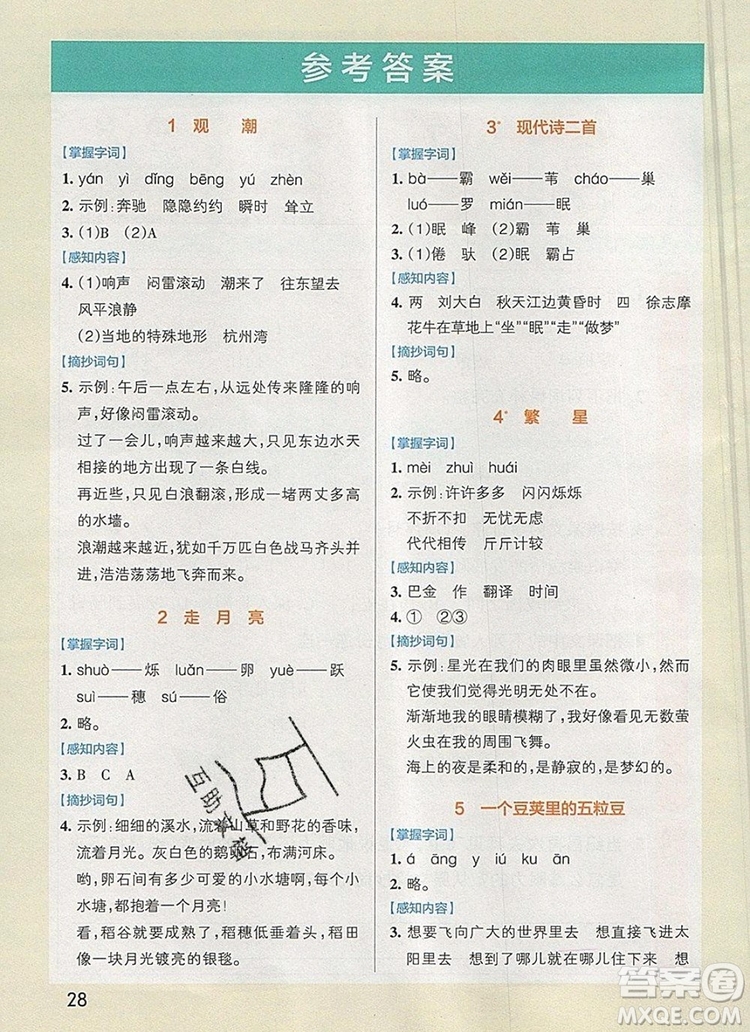 参考答案
1 观 潮
【掌握字词】
1. yán yì dǐng bēng yú zhèn
2. 示例：奔驰 隐隐约约 瞬时 耸立
3. (1)B (2)A
【感知内容】
4. (1)响声 闷雷滚动 潮来了 往东望去
风平浪静
(2)当地的特殊地形 杭州湾
【摘抄词句】
5. 示例：午后一点左右，从远处传来隆隆的响
声，好像闷雷滚动。
过了一会儿，响声越来越大，只见东边水天
相接的地方出现了一条白线。
再近些，只见白浪翻滚，形成一堵两丈多高
的水墙。
浪潮越来越近，犹如千万匹白色战马齐头并
进，浩浩荡荡地飞奔而来。
2 走 月 亮
【掌握字词】
1. shuò——烁 luǎn——卵 yuè——跃
suì——穗 sú——俗
2. 略。
【感知内容】
3. B C A
【摘抄词句】
4. 示例：细细的溪水，流着山草和野花的香味，
流着月光。灰白色的鹅卵石，布满河床。
哟，卵石间有多少可爱的小水塘啊，每个小
水塘，都抱着一个月亮！
看，稻谷就要成熟了，稻穗低垂着头，稻田
像一块月光镀亮的银毯。
28
3* 现代诗二首
【掌握字词】
1. bà——霸 wěi——苇 cháo——巢
luó——罗 mián——眠
2. (1)眠 峰 (2)霸 苇 巢
3. (1)倦 驮 (2)眠 霸占
【感知内容】
4. 两 刘大白 秋天江边黄昏时 四 徐志摩
花牛在草地上“坐”“眠”“走”“做梦”
【摘抄词句】
5. 略。
4* 繁 星
【掌握字词】
1. mèi zhuì huái
2. 示例：许许多多 闪闪烁烁
不折不扣 无忧无虑
代代相传 斤斤计较
【感知内容】
3. 巴金 作 翻译 时间
4. ① ②③
【摘抄词句】
5. 示例：星光在我们的肉眼里虽然微小，然
而它使我们觉得光明无处不在。
渐渐地我的眼睛模糊了，我好像看见无数萤
火虫在我的周围飞舞。
海上的夜是柔和的，是静寂的，是梦幻的。
5 一个豆荚里的五粒豆
【掌握字词】
1. á āng y iú ku ān
2. 略。
【感知内容】
3. 想要飞向广大的世界里去 想直接飞进太
阳里去 想到了哪儿就在哪儿住下来 想
互助文档
答案圈
MXQE.COM